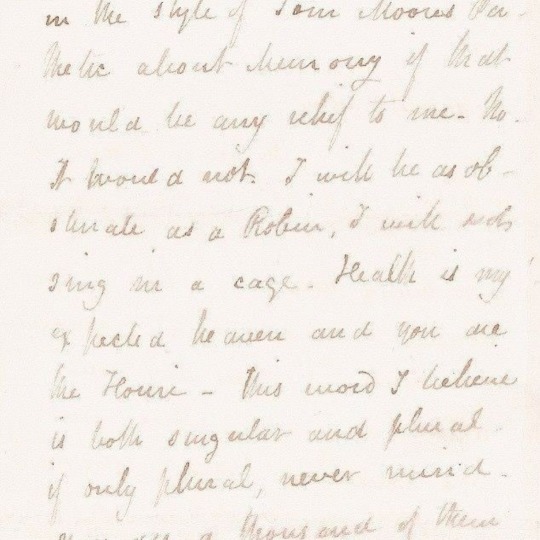 in the style of Tom Moore's Pa-
thetic about Memory if that
would be any relief to me - No.
It would not. I will be as ob-
stinate as a Robin, I will not
sing in a cage - Health is my
expected heaven and you are
the Houri - this word I believe
is both singular and plural -
if only plural, never mind -
you are a thousand of them